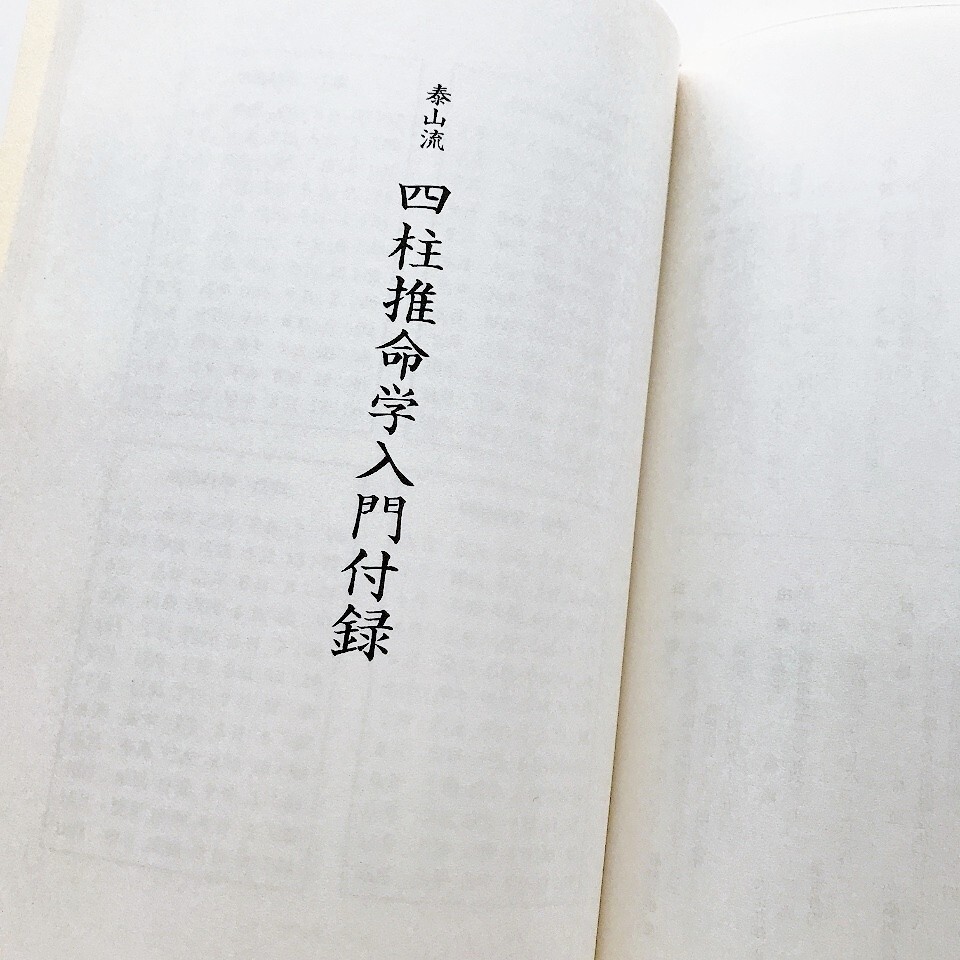 泰山流 四柱推命学入門付録